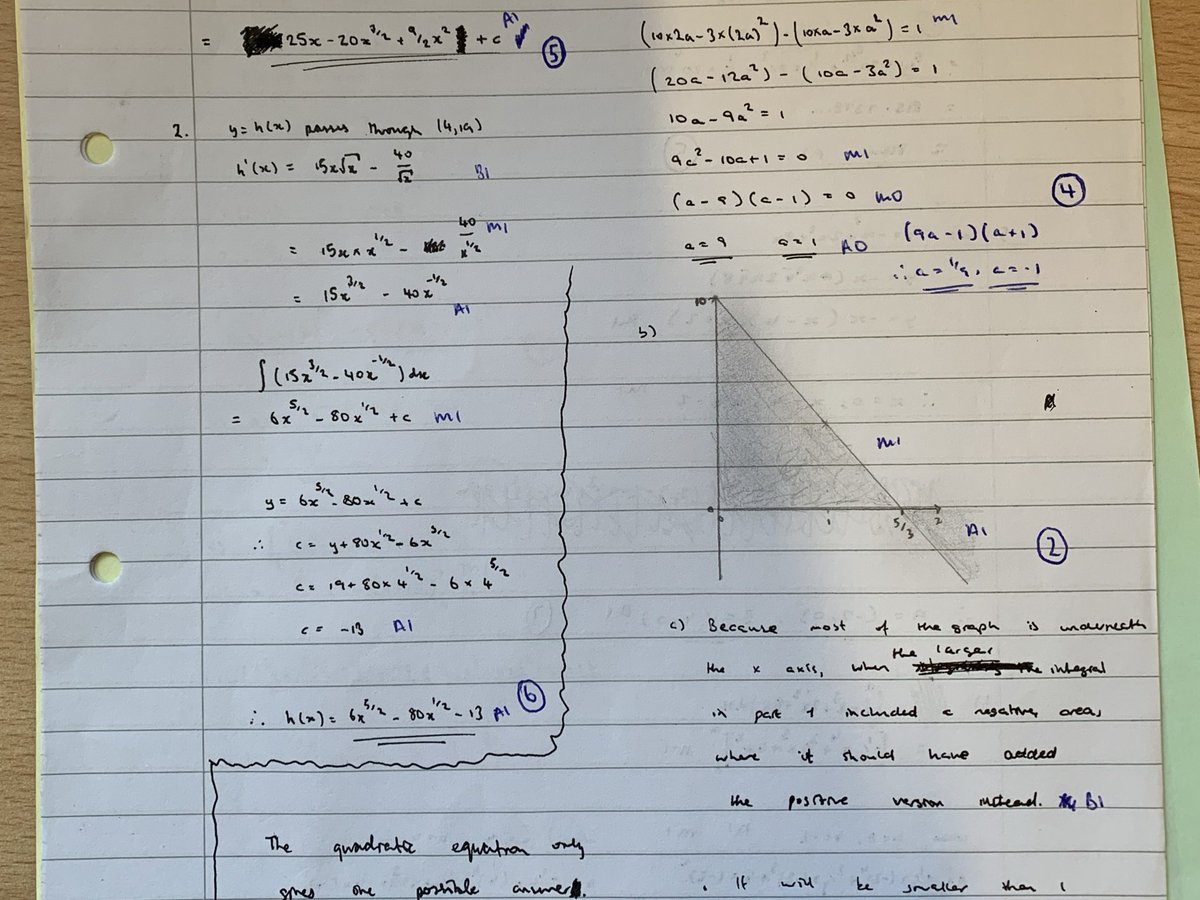 = 25x - 20x^3/2 + 9/2 x^2 + c A1
5
2. y = h(x) passes through (4,19)
h'(x) = 15x√x - 40/√x B1
= 15x × x^1/2 - 40/x^1/2 M1
= 15x^3/2 - 40x^-1/2
A1
∫(15x^3/2 - 40x^-1/2) dx
= 6x^5/2 - 80x^1/2 + c M1
y = 6x^5/2 - 80x^1/2 + c
∴ c = y + 80x^1/2 - 6x^5/2
c = 19 + 80 × 4^1/2 - 6 × 4^5/2
c = -13 A1
6
∴ h(x) = 6x^5/2 - 80x^1/2 - 13 A1
The quadratic equation only
gives one possible answer.
(10×2a - 3×(2a)^2) - (10×a - 3×a^2) = 1 M1
(20a - 12a^2) - (10a - 3a^2) = 1
10a - 9a^2 = 1
9a^2 - 10a + 1 = 0 M1
(a - 9)(a - 1) = 0 M0
4
a = 9 a = 1 A0 (9a - 1)(a + 1)
∴ a = 1/9, a = -1
10
b)
M1
0
0 1 5/3 2
A1
2
c) Because most of the graph is underneath
the x axis, when the larger integral
in part 1 included a negative area,
where it should have added
the positive version instead. B1
. It will be smaller than 1